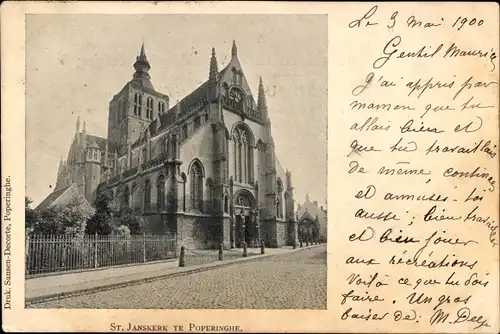 Le 3 Mai 1900
Gentil Maurice
J'ai appris par
maman que tu
allais bien et
que tu travaillais
de même, continue
et amuses-toi
aussi; bien travailler
et bien jouer
aux récréations
Voilà ce que tu dois
faire. Un gros
baiser de. M.
ST. JANSKERK TE POPERINGHE.
Druk Sansen-Decorte, Poperinghe.